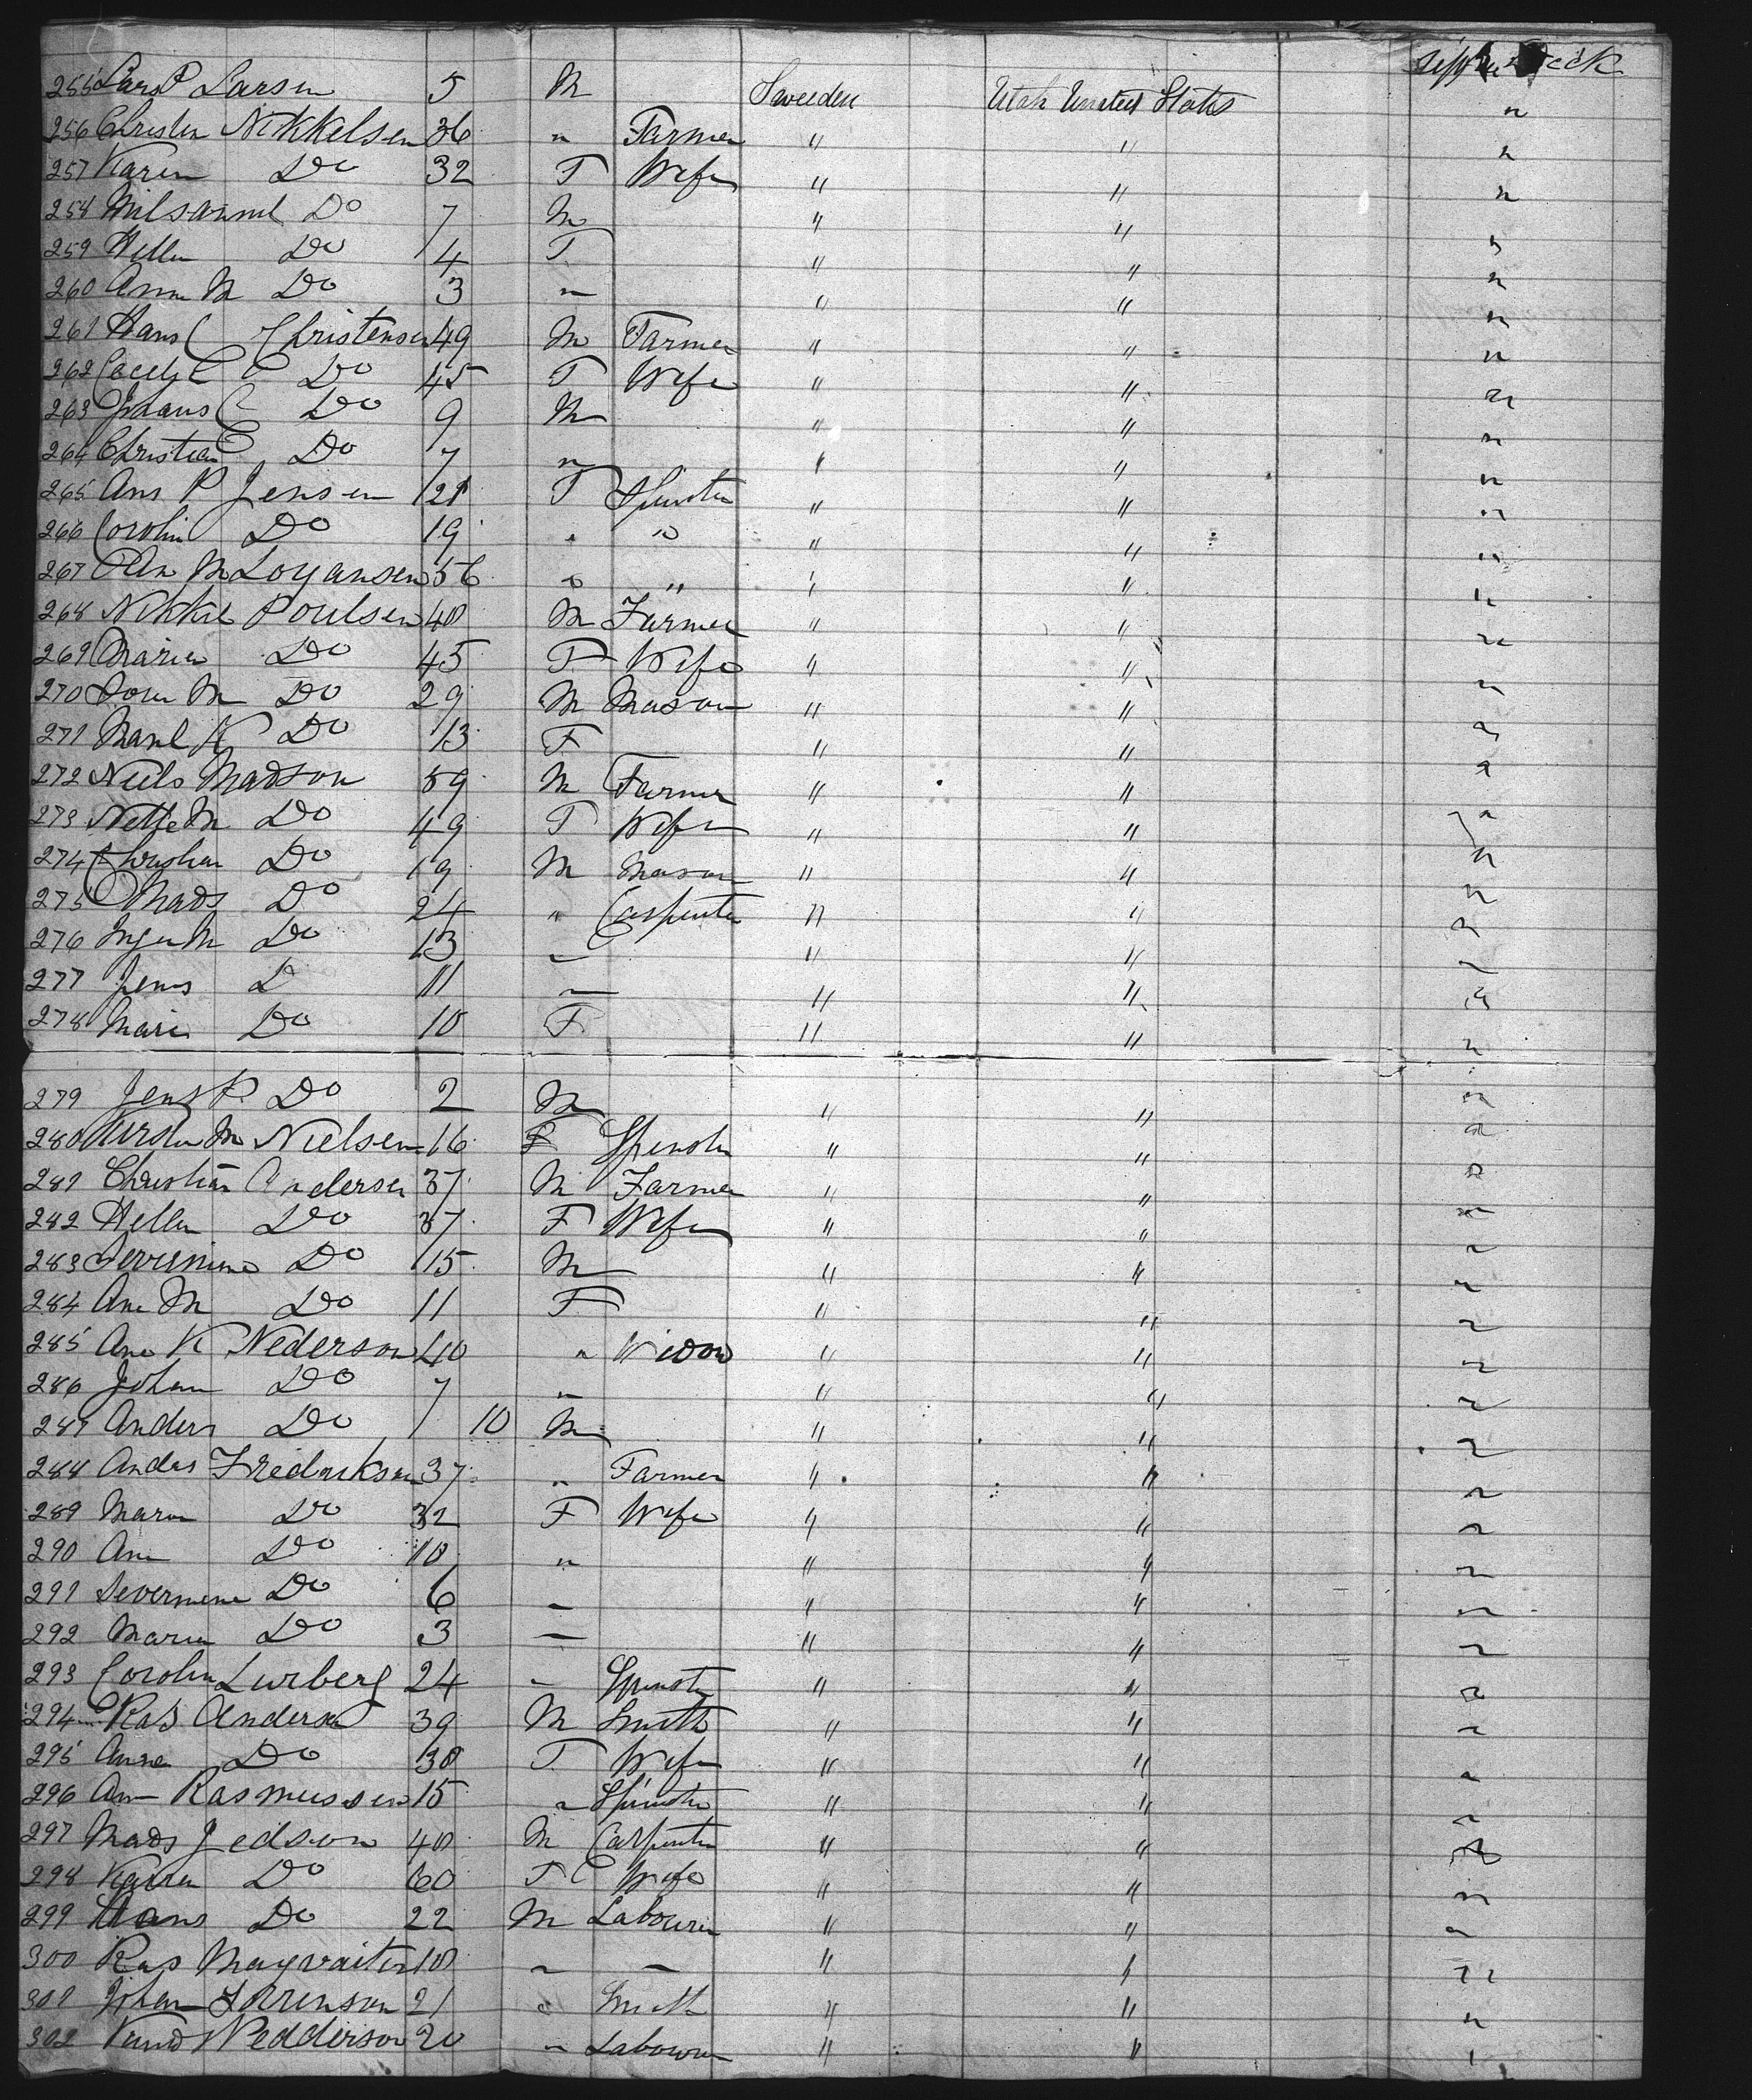 255 Lars P Larsen 5 M Sweeden Utah United States Upper Deck
256 Christen Nikkelsen 36 " Farmer " " "
257 Karen Do 32 F Wife " " "
258 Do 7 M " " "
259 Hellen Do 4 F " " "
260 Ann M Do 3 " " " "
261 Hans C Christensen 49 M Farmer " " "
262 C Do 45 F Wife " " "
263 C Do 9 M " " "
264 Christian Do 7 " " " "
265 Ans P Jensen 21 F Spinster " " "
266 Corolin Do 19 " " " " "
267 An M Loyansen 56 " " " " "
268 Nikkel Poulsen 48 M Farmer " " "
269 Maria Do 45 F Wife " " "
270 M Do 29 M Mason " " "
271 K Do 13 F " " "
272 Niels Madson 59 M Farmer " " "
273 Nette M Do 49 F Wife " " "
274 Christian Do 19 M Mason " " "
275 Mads Do 24 " Carpenter " " "
276 Inger M Do 13 " " " "
277 Jens D 11 " " " "
278 Mari Do 10 F " " "
279 Jens P. Do 2 M " " "
280 Kirsten M Nielsen 16 F Spinster " " "
281 Christian Andersen 37 M Farmer " " "
282 Hellen Do 37 F Wife " " "
283 Do 15 M " " "
284 Ane M Do 11 F " " "
285 Ane K Nederson 40 " Widow " " "
286 Johan Do 7 " " " "
287 Anders Do 10 M " " "
288 Andas Fredriksen 37 " Farmer " " "
289 Maren Do 32 F Wife " " "
290 Ane Do 10 " " " "
291 Severmene Do 6 " " " "
292 Maren Do 3 " " " "
293 Corolin Lurberg 24 " Spinster " " "
294 Ras Anderson 39 M Smith " " "
295 Anna Do 38 F Wife " " "
296 Ann Rasmussen 15 " Spinster " " "
297 Mads Jedson 48 M Carpenter " " "
298 Karen Do 60 F Wife " " "
299 Hans Do 22 M Labourer " " "
300 Ras 18 " " " " "
301 Johan Sorrenson 21 " Smith " " "
302 Nedderson 20 " Labourer " " "